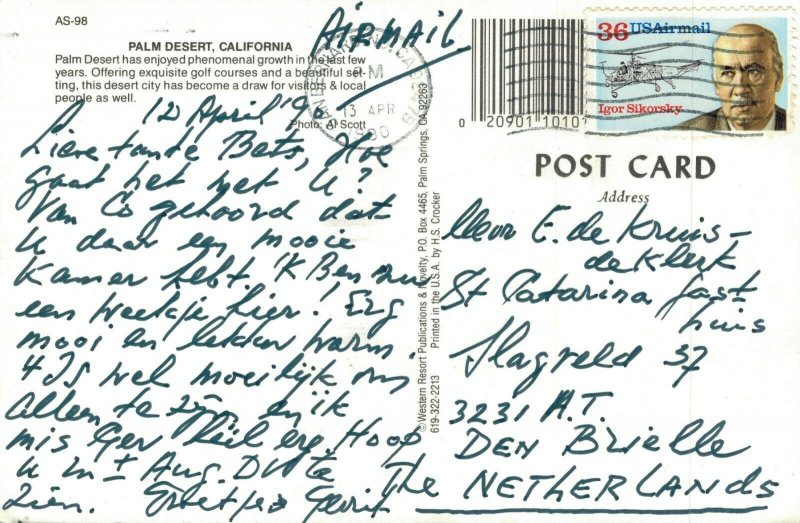 AS-98
PALM DESERT, CALIFORNIA
Palm Desert has enjoyed phenomenal growth in the last few
years. Offering exquisite golf courses and a beautiful set-
ting, this desert city has become a draw for visitors & local
people as well.
Photo: Al Scott
AIRMAIL
12 April '90
Lieve tante Bets, Hoe
gaat het met U?
Van Co gehoord dat
U daar een mooie
Kamer hebt. 'K Ben nu
een weekje hier! Erg
mooi en lekker warm.
'T Is wel moeilijk om
alleen te zijn, en ik
mis Ger heel erg. Hoop
U in ± Aug. te
zien. Groetjes Gerrit
© Western Resort Publications & Novelty, P.O. Box 4465, Palm Springs, CA 92263
619-322-2213 Printed in the U.S.A. by H.S. Crocker
PM
13 APR
1990
0 20901 10101
36 USAirmail
Igor Sikorsky
POST CARD
Address
Mevr E. de Kruis-
de Klerk
St Catarina Gast-
huis
Slagveld 37
3231 A.T.
DEN BRIELLE
The NETHERLANDS